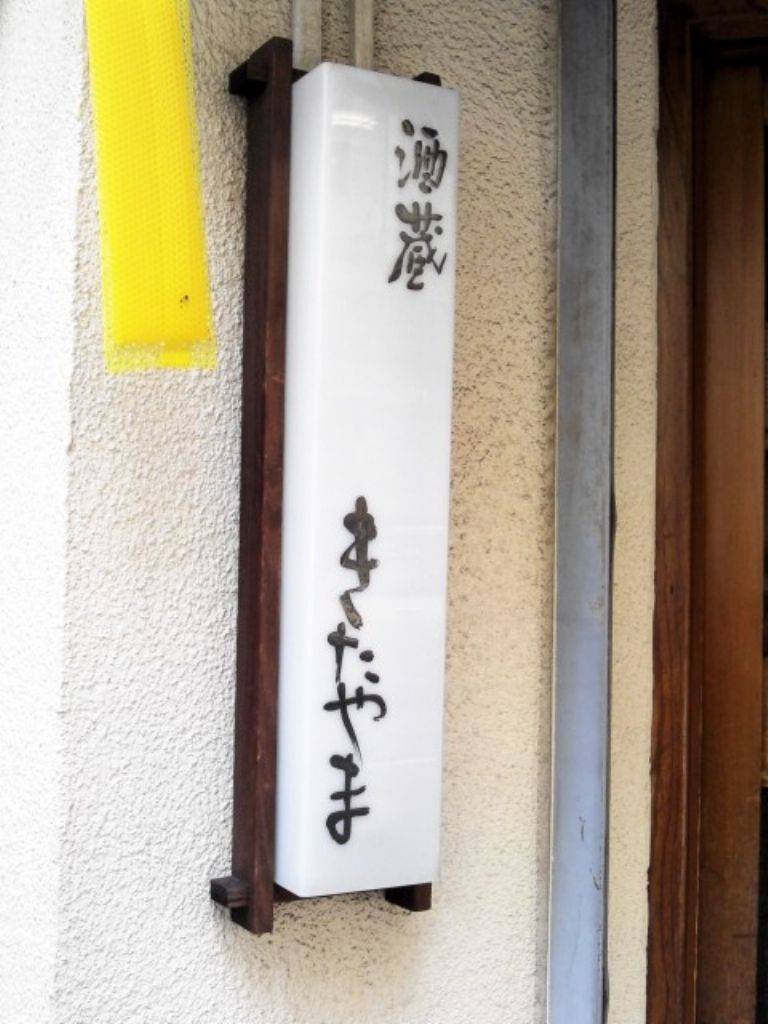 酒蔵
きたやま